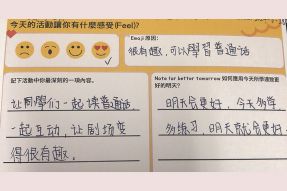 今天的活動讓你有什麼感受(Feel)?
Emoji 原因:
很有趣,可以學習普通话
記下活動中你最深刻的一項內容。
让同學们一起读普通话,
一起互动,让剧场变
得很有趣。
Note for better tomorrow 如何應用今天所學達致更
好的明天?
明天会更好,今天多学,
多练习,明天就会更好.